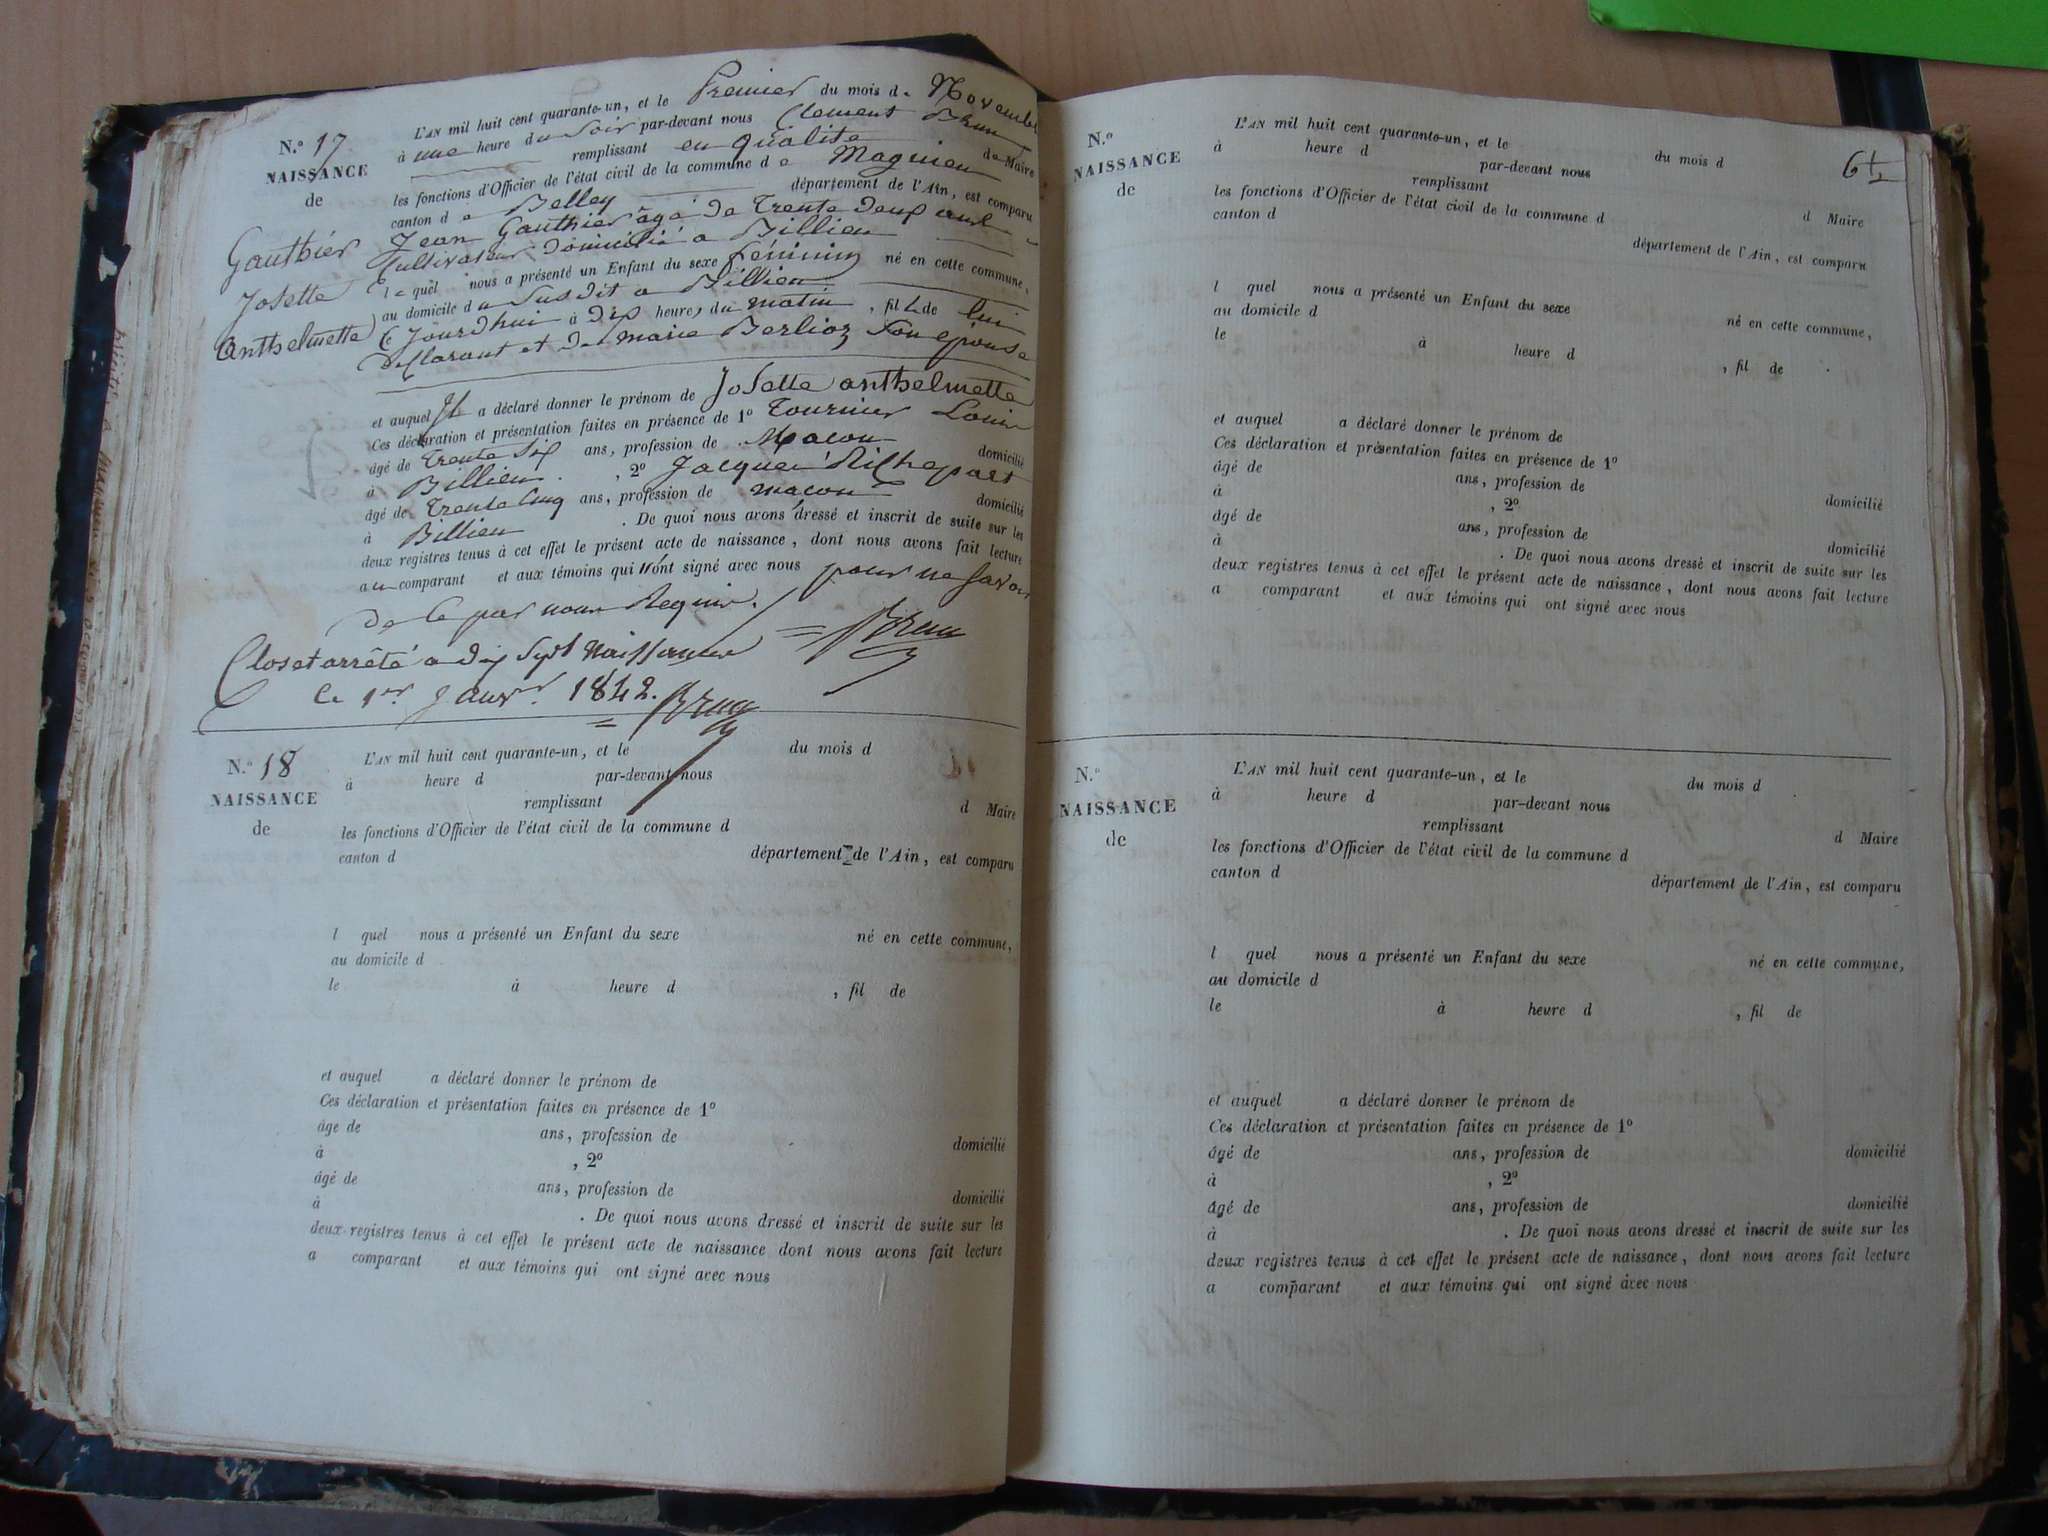 N.o 17
NAISSANCE
de
Gauthier
Josette
Anthelmette
L'AN mil huit cent quarante-un, et le Premier du mois de Novembre
à une heure du Soir par-devant nous Clement Brun
remplissant en qualité de Maire
les fonctions d'Officier de l'état civil de la commune de Magnieu
canton de Belley département de l'Ain, est comparu
Jean Gauthier âgé de Trente deux ans
Cultivateur domicilié a Billieu
lequel nous a présenté un Enfant du sexe féminin né en cette commune,
au domicile du Susdit a Billieu
Cejourdhui à dix heures du matin, fille de lui
Declarant et de marie Berlioz Son épouse
et auquel Il a déclaré donner le prénom de Josette anthelmette
Ces déclaration et présentation faites en présence de 1º Tournier Louis
âgé de Trente Six ans, profession de Macon domicilié
à Billieu. , 2º Jacques
âgé de Trente Cinq ans, profession de macon domicilié
à Billieu . De quoi nous avons dressé et inscrit de suite sur les
deux registres tenus à cet effet le présent acte de naissance, dont nous avons fait lecture
au comparant et aux témoins qui n'ont signé avec nous pour ne Savoir
de ce par nous Requis.
Brun
Clos et arrêté a dix Sept Naissances
le 1er Janvr. 1842. Brun
N.o 18
NAISSANCE
de
L'AN mil huit cent quarante-un, et le du mois d
à heure d par-devant nous
remplissant d Maire
les fonctions d'Officier de l'état civil de la commune d
canton d département de l'Ain, est comparu
l quel nous a présenté un Enfant du sexe né en cette commune,
au domicile d
le à heure d , fil de
et auquel a déclaré donner le prénom de
Ces déclaration et présentation faites en présence de 1º
âge de ans, profession de domicilié
à , 2º
âgé de ans, profession de domicilié
à . De quoi nous avons dressé et inscrit de suite sur les
deux registres tenus à cet effet le présent acte de naissance dont nous avons fait lecture
a comparant et aux témoins qui ont signé avec nous
N.o
NAISSANCE
de
L'AN mil huit cent quarante-un, et le du mois d
à heure d par-devant nous
remplissant d Maire
les fonctions d'Officier de l'état civil de la commune d
canton d département de l'Ain, est comparu
l quel nous a présenté un Enfant du sexe né en cette commune,
au domicile d
le à heure d , fil de
et auquel a déclaré donner le prénom de
Ces déclaration et présentation faites en présence de 1º
âgé de ans, profession de domicilié
à , 2º
âgé de ans, profession de domicilié
à . De quoi nous avons dressé et inscrit de suite sur les
deux registres tenus à cet effet le présent acte de naissance, dont nous avons fait lecture
a comparant et aux témoins qui ont signé avec nous
N.o
NAISSANCE
de
L'AN mil huit cent quarante-un, et le du mois d
à heure d par-devant nous
remplissant d Maire
les fonctions d'Officier de l'état civil de la commune d
canton d département de l'Ain, est comparu
l quel nous a présenté un Enfant du sexe né en cette commune,
au domicile d
le à heure d , fil de
et auquel a déclaré donner le prénom de
Ces déclaration et présentation faites en présence de 1º
âgé de ans, profession de domicilié
à , 2º
âgé de ans, profession de domicilié
à . De quoi nous avons dressé et inscrit de suite sur les
deux registres tenus à cet effet le présent acte de naissance, dont nous avons fait lecture
a comparant et aux témoins qui ont signé avec nous